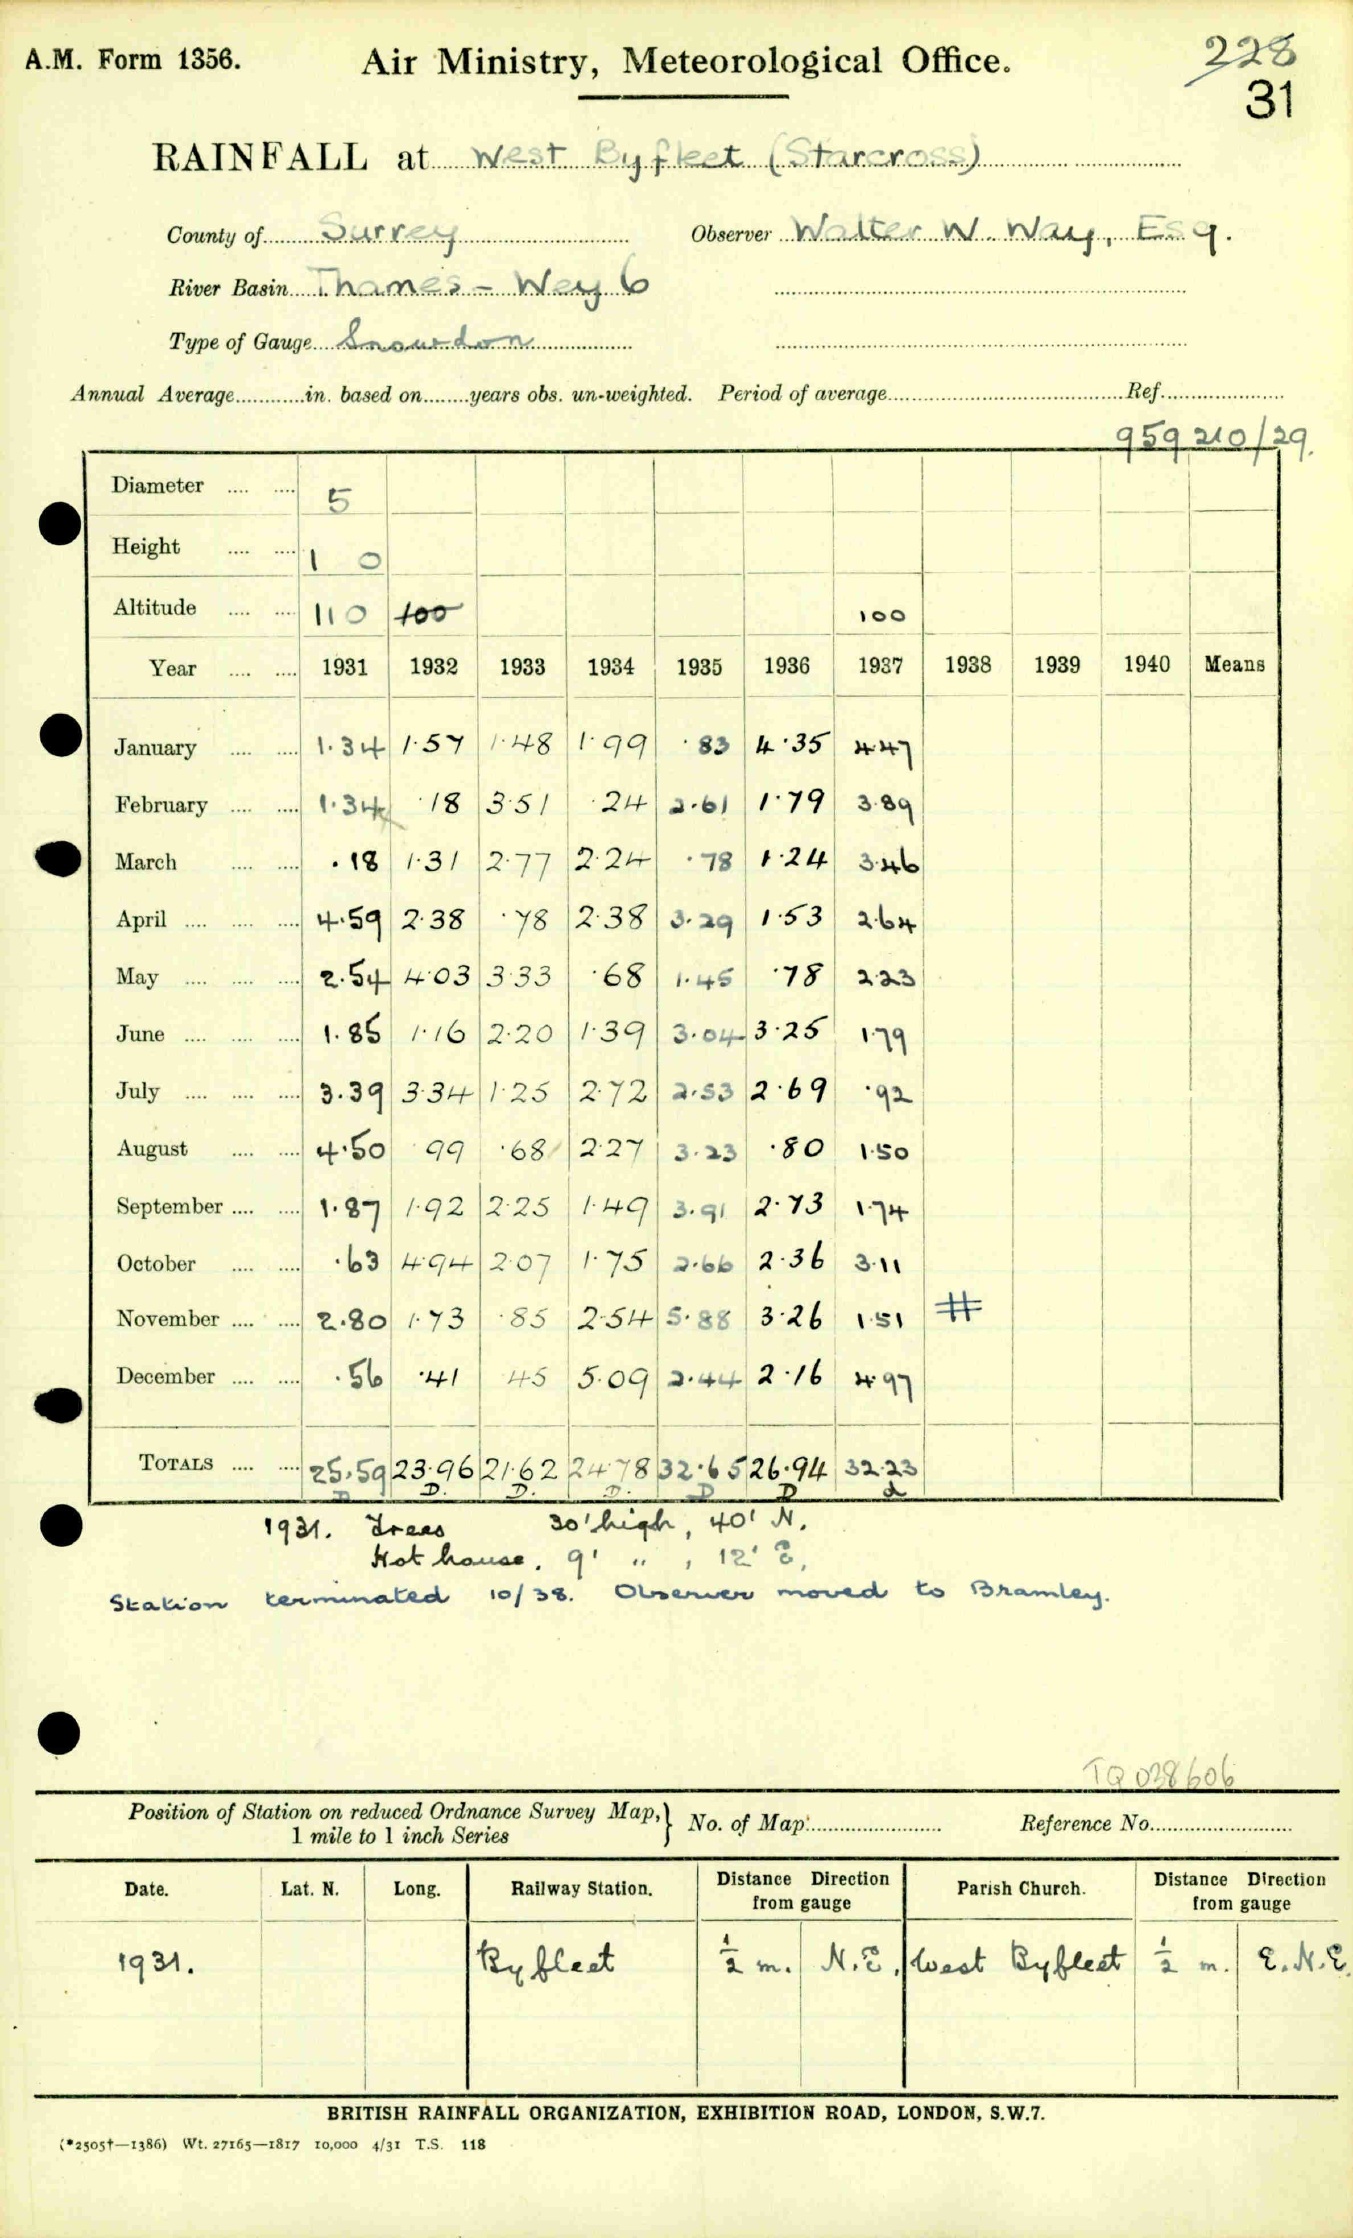 A.M. Form 1356. Air Ministry, Meteorological Office. 228
31
RAINFALL at West Byfleet (Starcross)
County of Surrey Observer Walter W. Way, Esq.
River Basin Thames - Wey 6
Type of Gauge Snowdon
Annual Average in. based on years obs. un-weighted. Period of average Ref.
959210/29.
Diameter 5
Height 1 0
Altitude 110 100 100
Year 1931 1932 1933 1934 1935 1936 1937 1938 1939 1940 Means
January 1.34 1.57 1.48 1.99 .83 4.35 4.47
February 1.34 .18 3.51 .24 2.61 1.79 3.89
March .18 1.31 2.77 2.24 .78 1.24 3.46
April 4.59 2.38 .78 2.38 3.29 1.53 2.64
May 2.54 4.03 3.33 .68 1.45 .78 2.23
June 1.85 1.16 2.20 1.39 3.04 3.25 1.79
July 3.39 3.34 1.25 2.72 2.53 2.69 .92
August 4.50 .99 .68 2.27 3.23 .80 1.50
September 1.87 1.92 2.25 1.49 3.91 2.73 1.74
October .63 4.94 2.07 1.75 2.66 2.36 3.11
November 2.80 1.73 .85 2.54 5.88 3.26 1.51 #
December .56 .41 .45 5.09 2.44 2.16 4.97
TOTALS 25.59 23.96 21.62 24.78 32.65 26.94 32.23
D D. D. D. D D d
1931. Trees 30' high, 40' N.
Hot house. 9' " , 12' E.
Station terminated 10/38. Observer moved to Bramley.
TQ 038606
Position of Station on reduced Ordnance Survey Map, } No. of Map Reference No.
1 mile to 1 inch Series
Date. Lat. N. Long. Railway Station. Distance Direction from gauge Parish Church. Distance Direction from gauge
1931. Byfleet ½ m. N.E. West Byfleet ½ m. E.N.E.
BRITISH RAINFALL ORGANIZATION, EXHIBITION ROAD, LONDON, S.W.7.
(*2505†—1386) Wt. 27165—1817 10,000 4/31 T.S. 118